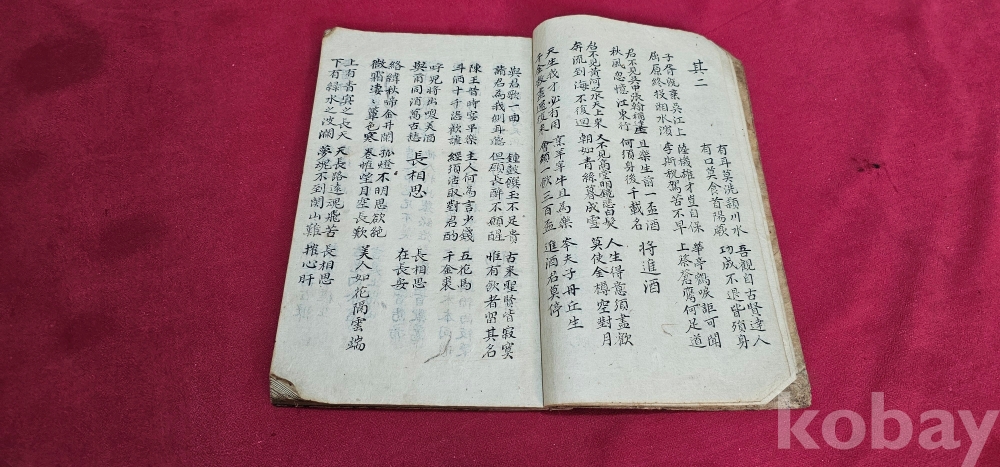 其二
有耳莫洗潁川水
有口莫食首陽蕨
吾觀自古賢達人
功成不退皆殞身
子胥既棄吳江上
屈原終投湘水濱
陸機雄才豈自保
李斯稅駕苦不早
華亭鶴唳詎可聞
上蔡蒼鷹何足道
君不見吳中張翰稱達
秋風忽憶江東行
且樂生前一盃酒
何須身後千載名
將進酒
君不見黃河之水天上來
奔流到海不復迴
又不見高堂明鏡悲白髮
朝如青絲暮成雪
人生得意須盡歡
莫使金樽空對月
天生我才必有用
千金散盡還復來
烹羊宰牛且為樂
會須一飲三百盃
岑夫子丹丘生
進酒君莫停
與君歌一曲
請君為我側耳聽
鐘鼓饌玉不足貴
但願長醉不願醒
古來聖賢皆寂寞
惟有飲者留其名
陳王昔時宴平樂
斗酒十千恣歡謔
主人何為言少錢
經須沽取對君酌
五花馬
千金裘
呼兒將出喚美酒
與爾同消萬古愁
長相思
長相思
在長安
絡緯秋啼金井闌
微霜凄凄簟色寒
孤燈不明思欲絕
卷帷望月空長歎
美人如花隔雲端
上有青冥之長天
下有綠水之波瀾
天長路遠魂飛苦
夢魂不到關山難
長相思
摧心肝
kobay